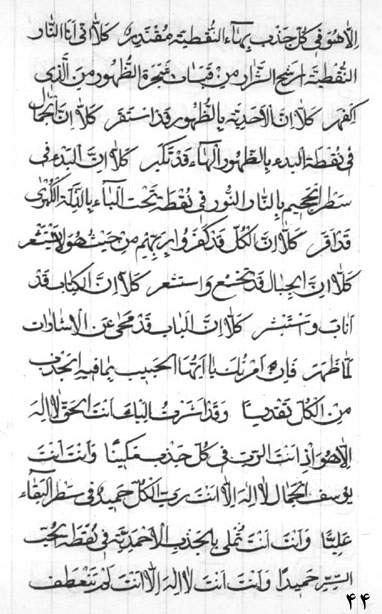 الا هو فی کل جذب بهاء النقطیة مقتدر کلا اقی انا النار
النقطیة ارشح النار من قبسات شجرة الظهور من الذی
اکفهر کلا ان الاحدیة بالظهور قد استقر کلا ان الجمال
فی نقطة البدء بالظهور الهاء قد تکبر کلا ان البدء فی
سطر الجحیم بالنار النور فی نقطة تحت الباء بالذلة الکبری
قد اقر کلا ان الکل قد کفروا بربهم من حیث هو لا یشعر
کلا ان الجبال قد تخشع و استشعر کلا ان الکتاب قد
اناب و استبشر کلا ان الباب قد محی عن الاشارات
لما ظهر فان امرنا یا ایها الحبیب بما فیه الجذب
من الکل تقدیسا و قد اشرف الباء انت الحق لا اله
الا هو اذ انت الرب فی کل جذب مکینا و انت انت
یوسف الجمال لا اله الا انت رب الکل حمید فی سطر البقاء
علیا و انت انت تملی بالجذب الاحمدیة فی نقطة تحت
السر حمیدا و انت انت لا اله الا انت لم تتعطف
۴۴